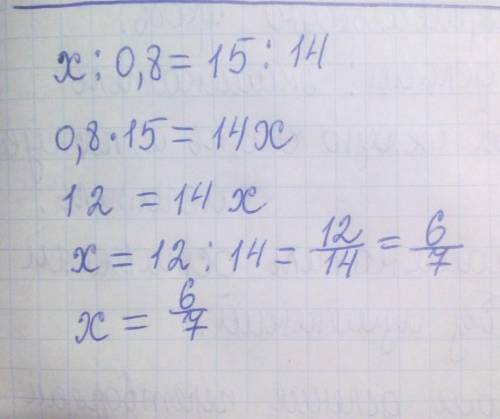 x : 0,8 = 15 : 14
0,8 · 15 = 14x
12 = 14x
x = 12 : 14 = 12/14 = 6/7
x = 6/7